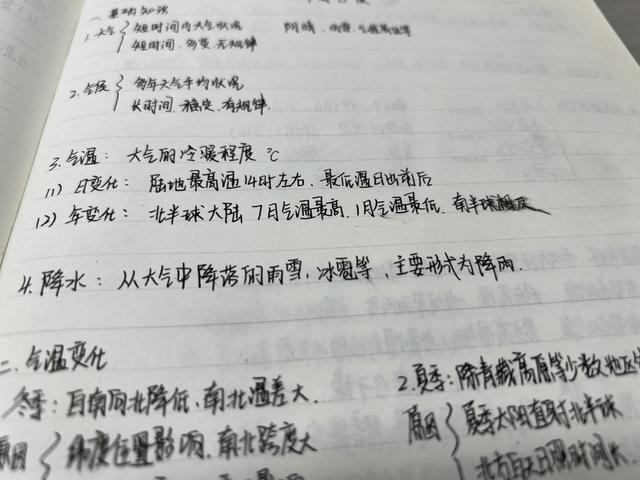 一、基础知识
1.天气 短时间内大气状况 阴晴、
短时间、多变、无规律
2.气候 多年天气平均状况
长时间、稳定、有规律.
3.气温: 大气的冷暖程度 ℃
(1) 日变化: 陆地最高温14时左右、最低温日出前后
(2) 年变化: 北半球大陆 7月气温最高, 1月气温最低. 南半球
4.降水: 从大气中降落的雨雪, 冰雹等, 主要形式为降雨.
二、气温变化
冬季: 自南向北降低、南北温差大.
原因 纬度位置影响、南北跨度大
2.夏季: 除青藏高原等少数地区
原因 夏季太阳直射北半球
北方白天日照时间长